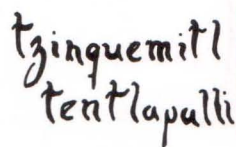 tzinquemitl
tentlapalli